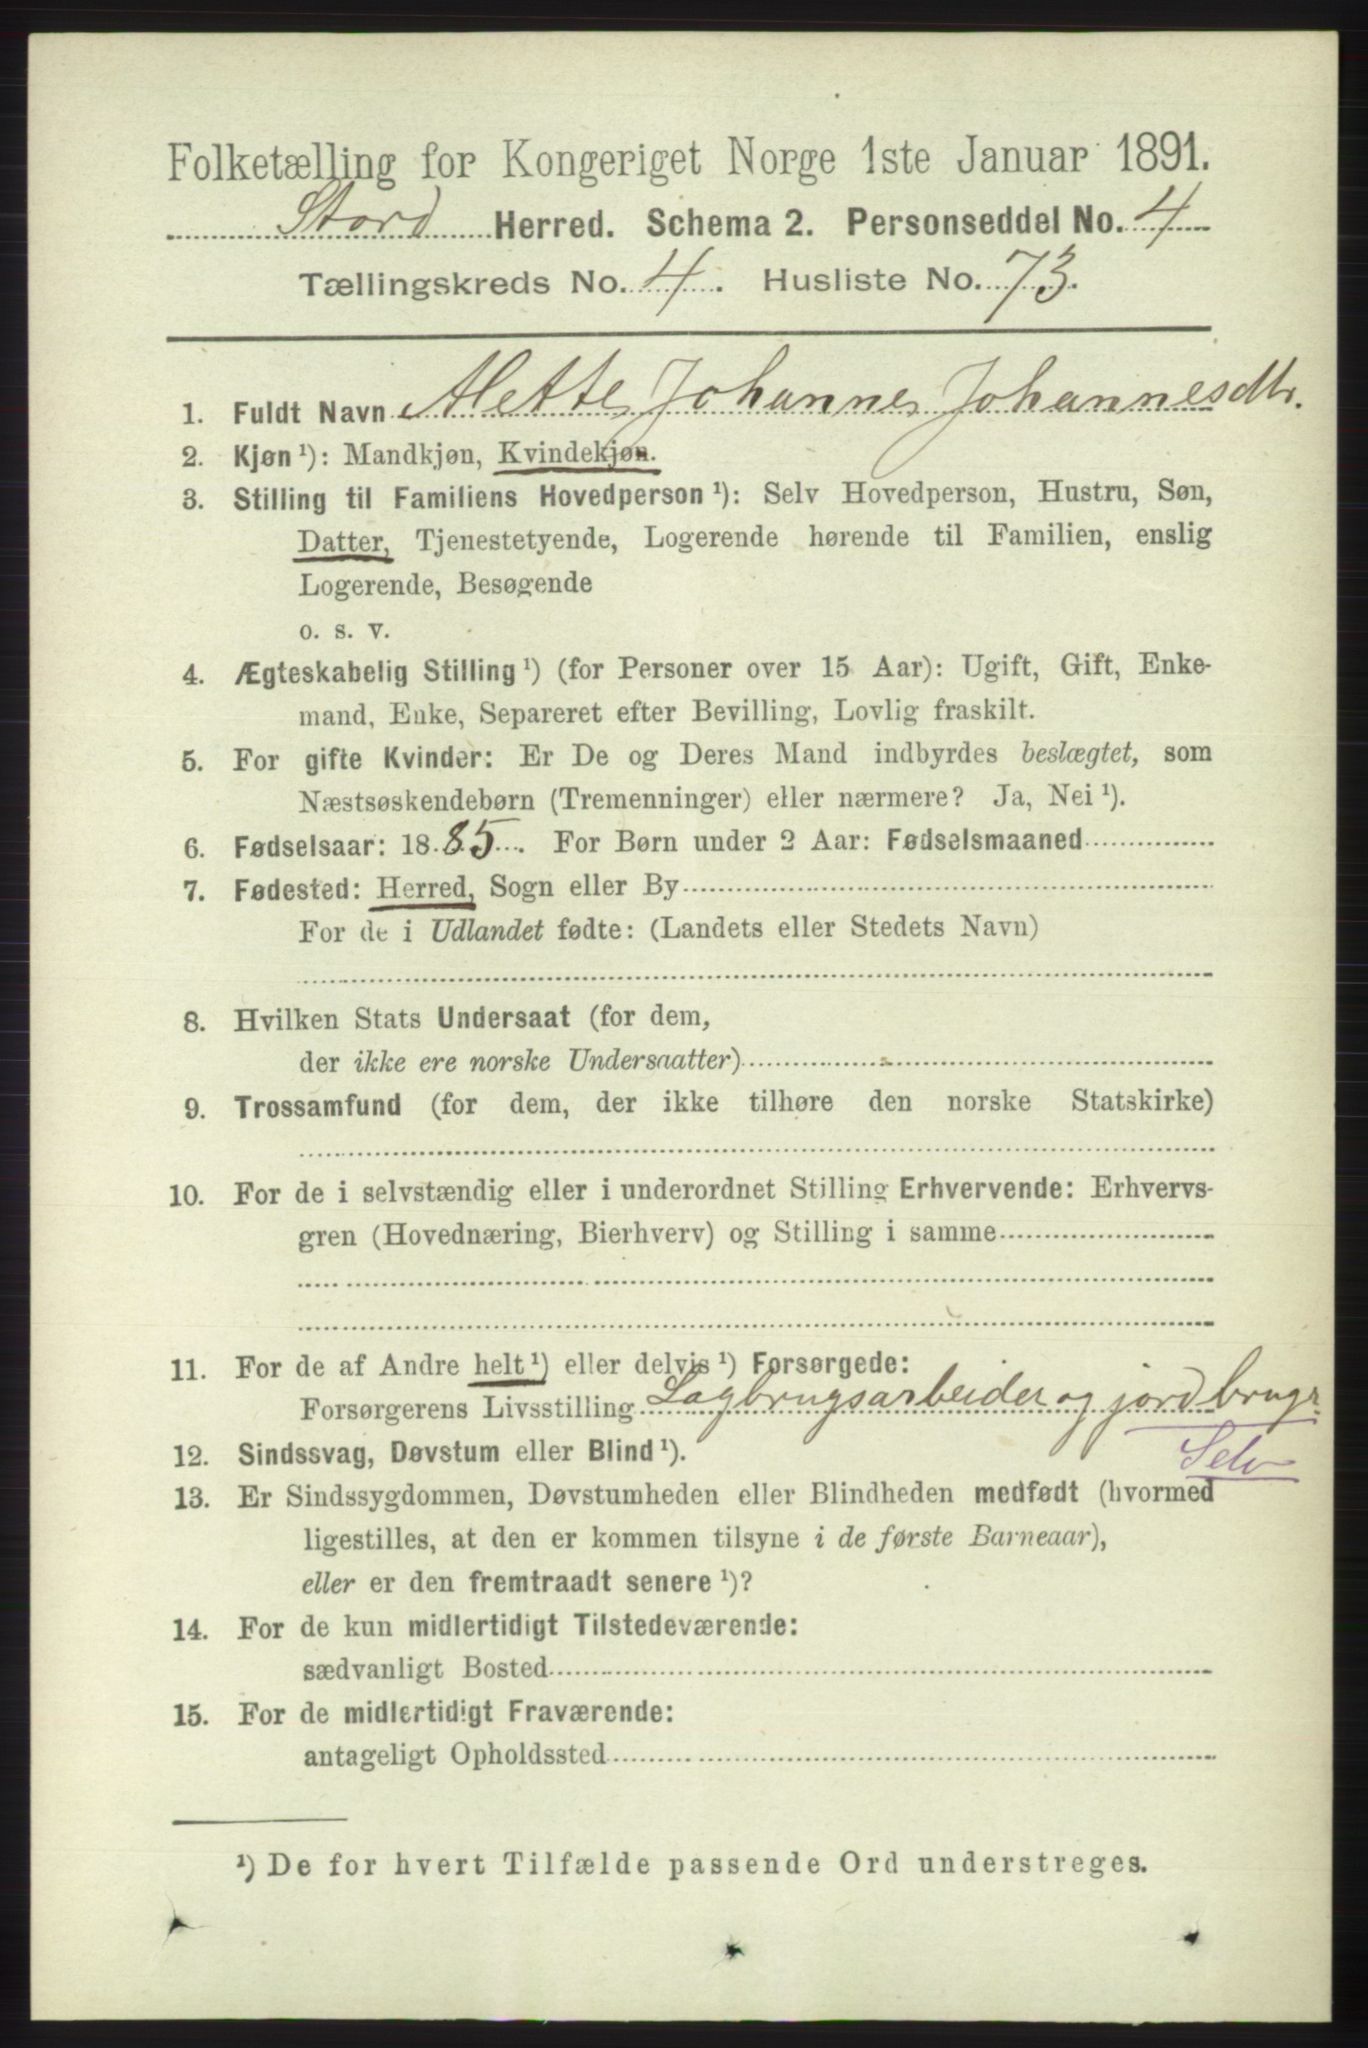 Folketælling for Kongeriget Norge 1ste Januar 1891.
Stord Herred. Schema 2. Personseddel No. 4
Tællingskreds No. 4. Husliste No. 73.
1. Fuldt Navn Alette Johannes Johannesdtr.
2. Kjøn ¹): Mandkjøn, Kvindekjøn.
3. Stilling til Familiens Hovedperson ¹): Selv Hovedperson, Hustru, Søn,
Datter, Tjenestetyende, Logerende hørende til Familien, enslig
Logerende, Besøgende
o. s. v.
4. Ægteskabelig Stilling ¹) (for Personer over 15 Aar): Ugift, Gift, Enke-
mand, Enke, Separeret efter Bevilling, Lovlig fraskilt.
5. For gifte Kvinder: Er De og Deres Mand indbyrdes beslægtet, som
Næstsøskendebørn (Tremenninger) eller nærmere? Ja, Nei ¹).
6. Fødselsaar: 1885. For Børn under 2 Aar: Fødselsmaaned
7. Fødested: Herred, Sogn eller By
For de i Udlandet fødte: (Landets eller Stedets Navn)
8. Hvilken Stats Undersaat (for dem,
der ikke ere norske Undersaatter)
9. Trossamfund (for dem, der ikke tilhøre den norske Statskirke)
10. For de i selvstændig eller i underordnet Stilling Erhvervende: Erhvervs-
gren (Hovednæring, Bierhverv) og Stilling i samme
11. For de af Andre helt ¹) eller delvis ¹) Forsørgede:
Forsørgerens Livsstilling Sagbrugsarbeider og jordbrugr.
Selv
12. Sindssvag, Døvstum eller Blind ¹).
13. Er Sindssygdommen, Døvstumheden eller Blindheden medfødt (hvormed
ligestilles, at den er kommen tilsyne i de første Barneaar),
eller er den fremtraadt senere ¹)?
14. For de kun midlertidigt Tilstedeværende:
sædvanligt Bosted
15. For de midlertidigt Fraværende:
antageligt Opholdssted
¹) De for hvert Tilfælde passende Ord understreges.